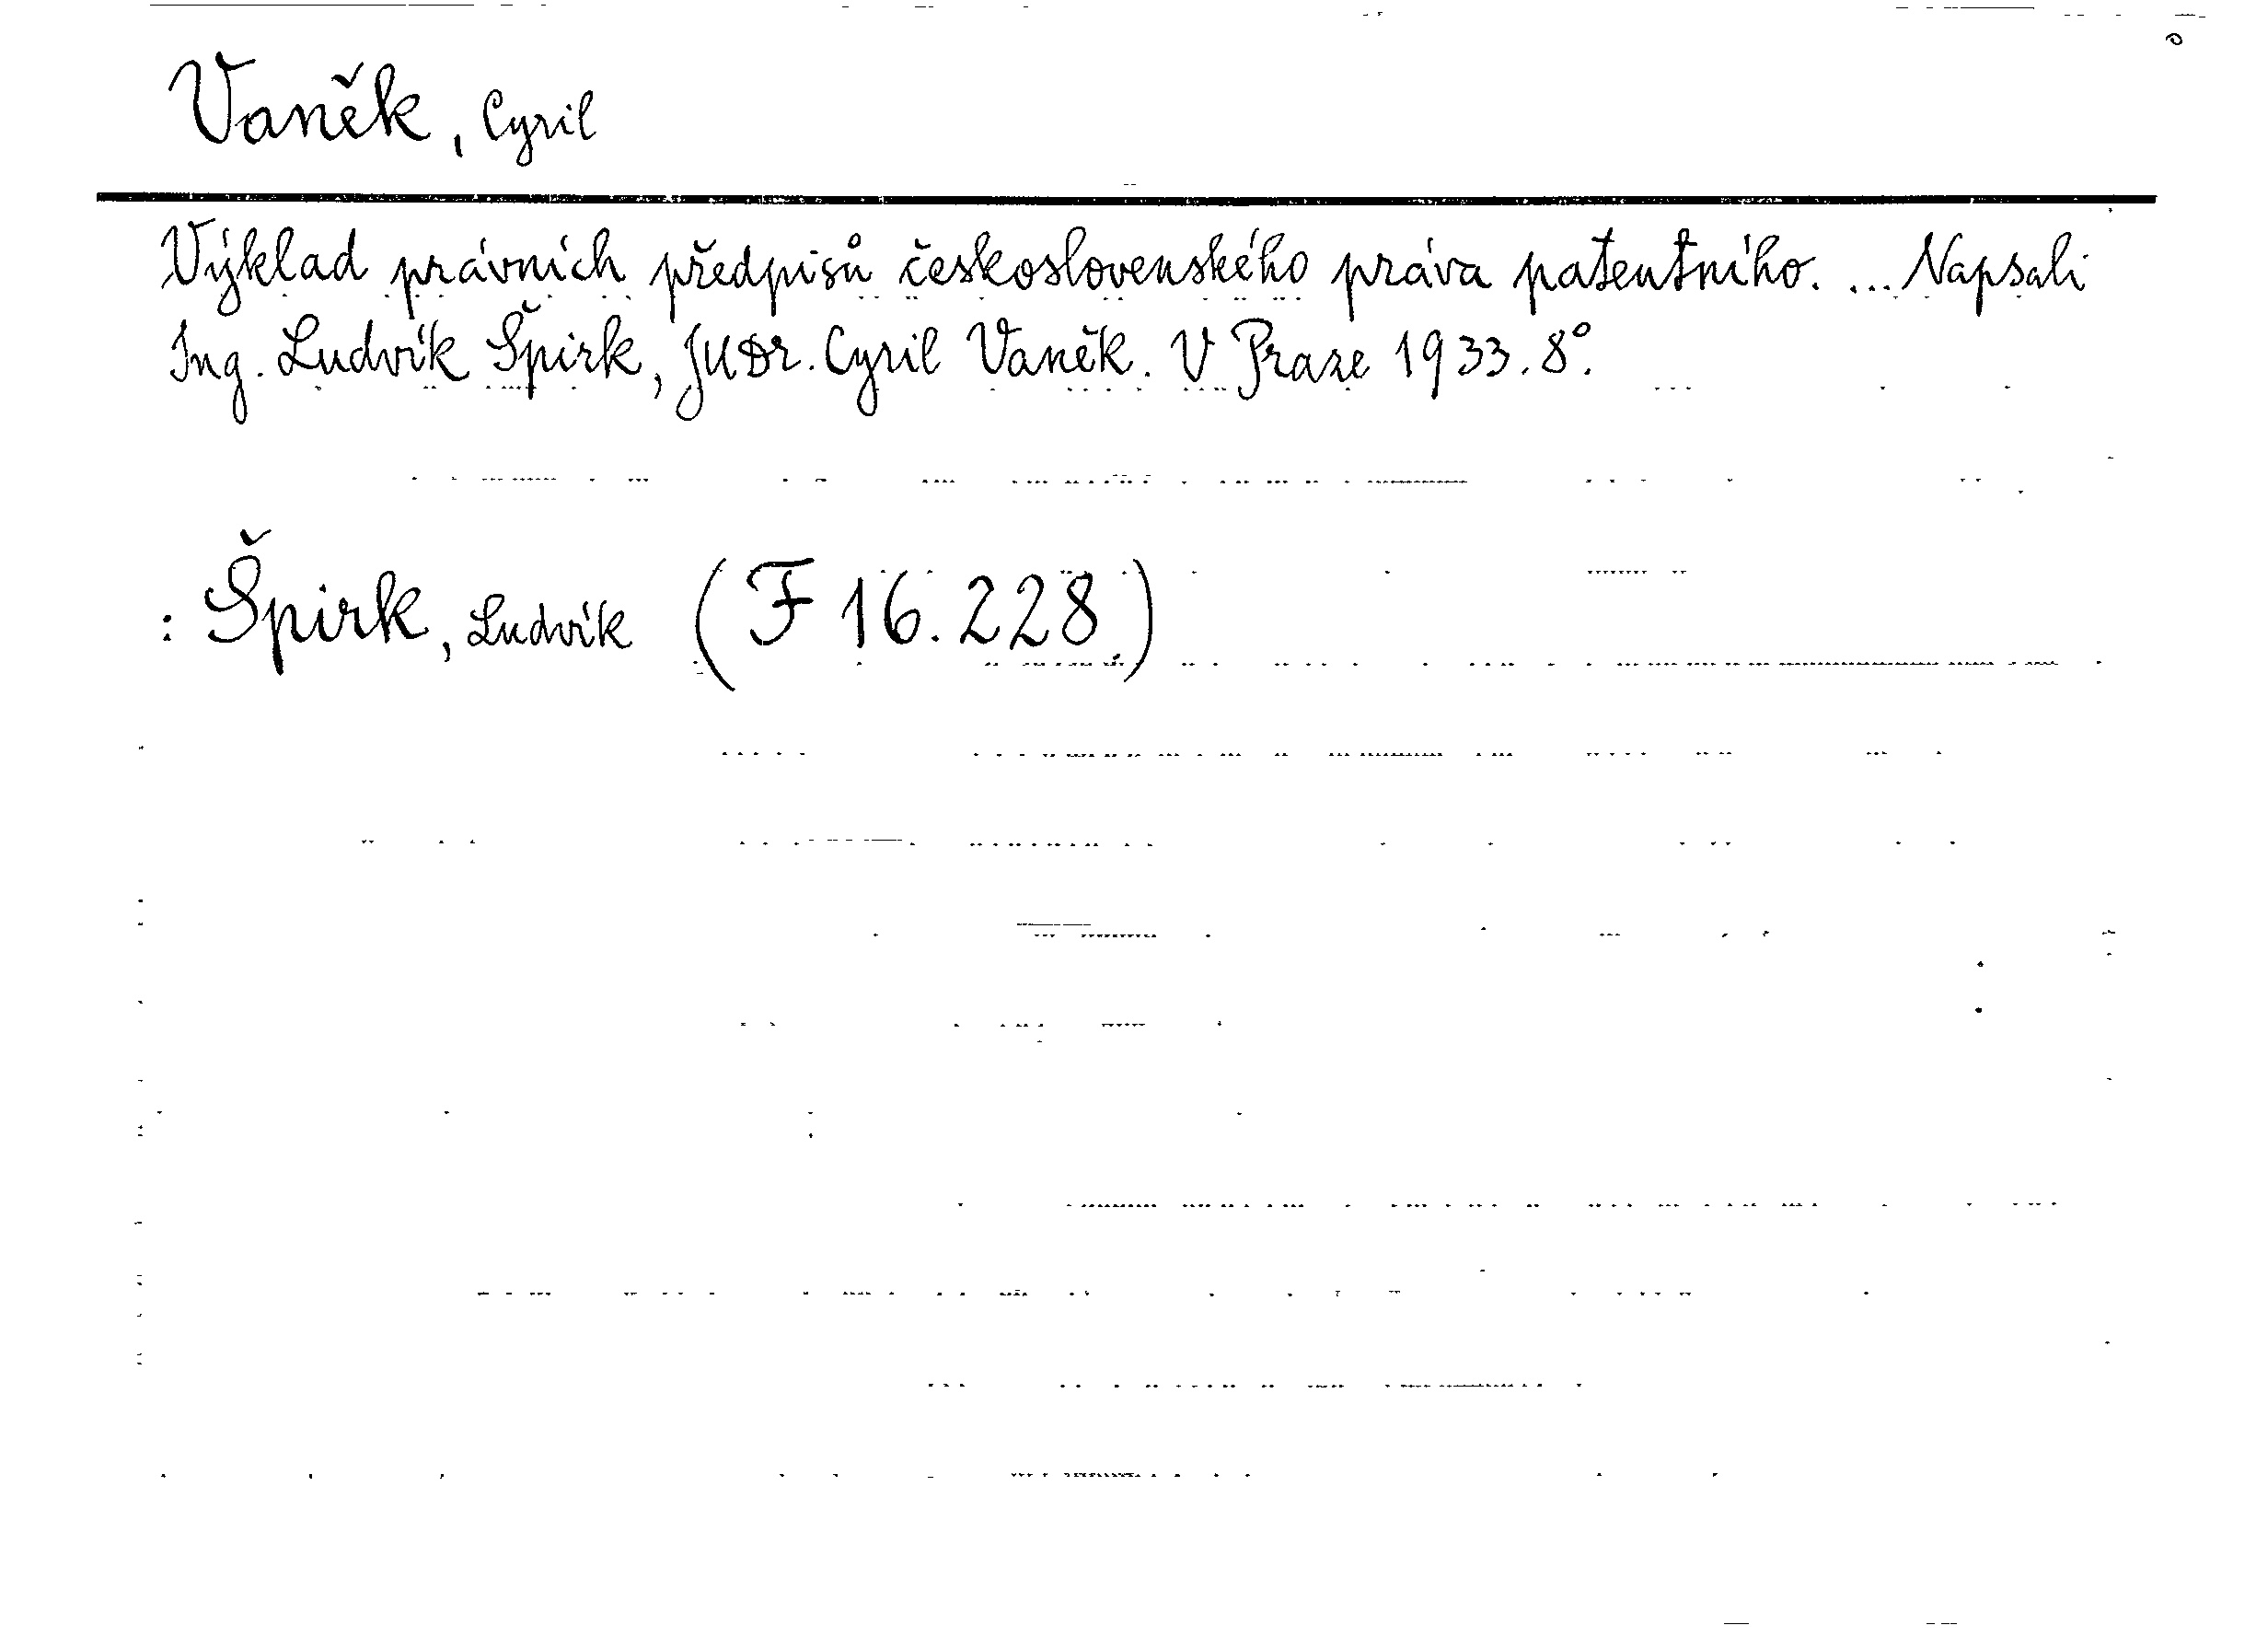 Vaněk, Cyril
Výklad právních předpisů československého práva patentního. ... Napsali
Ing. Ludvík Špirk, JUDr. Cyril Vaněk. V Praze 1933. 8°.
: Špirk, Ludvík (F 16.228.)